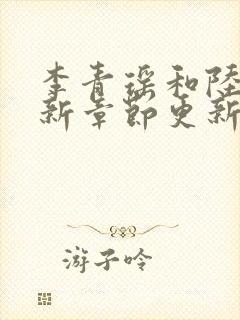 李青瑶和陸
新章節更新
游子吟